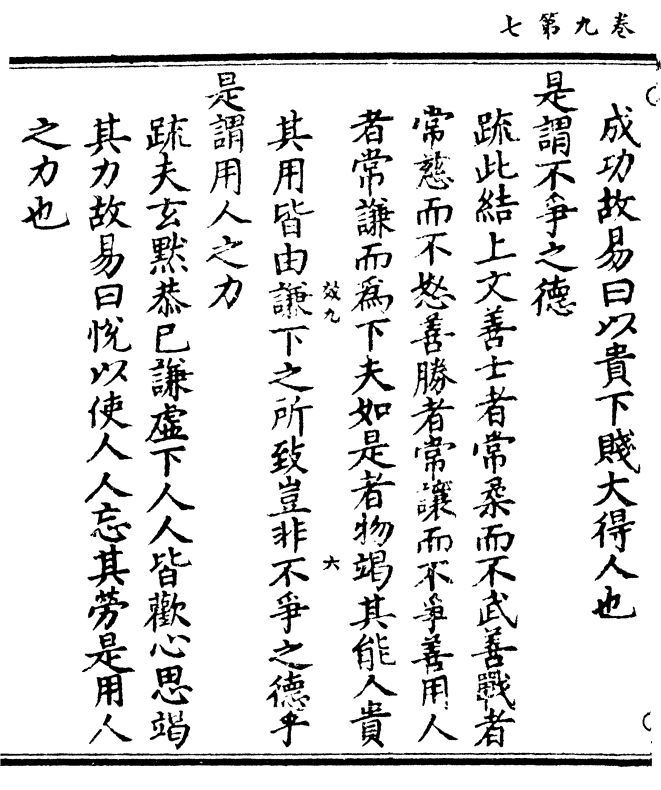 卷九第七
成功故易曰以貴下賤大得人也
是謂不爭之德
疏此結上文善士者常柔而不武善戰者
常慈而不怒善勝者常讓而不爭善用人
者常謙而爲下夫如是者物竭其能人貴
效九
六
其用皆由謙下之所致豈非不爭之德乎
是謂用人之力
疏夫玄默恭己謙虛下人人皆歡心思竭
其力故易曰悅以使人人忘其勞是用人
之力也